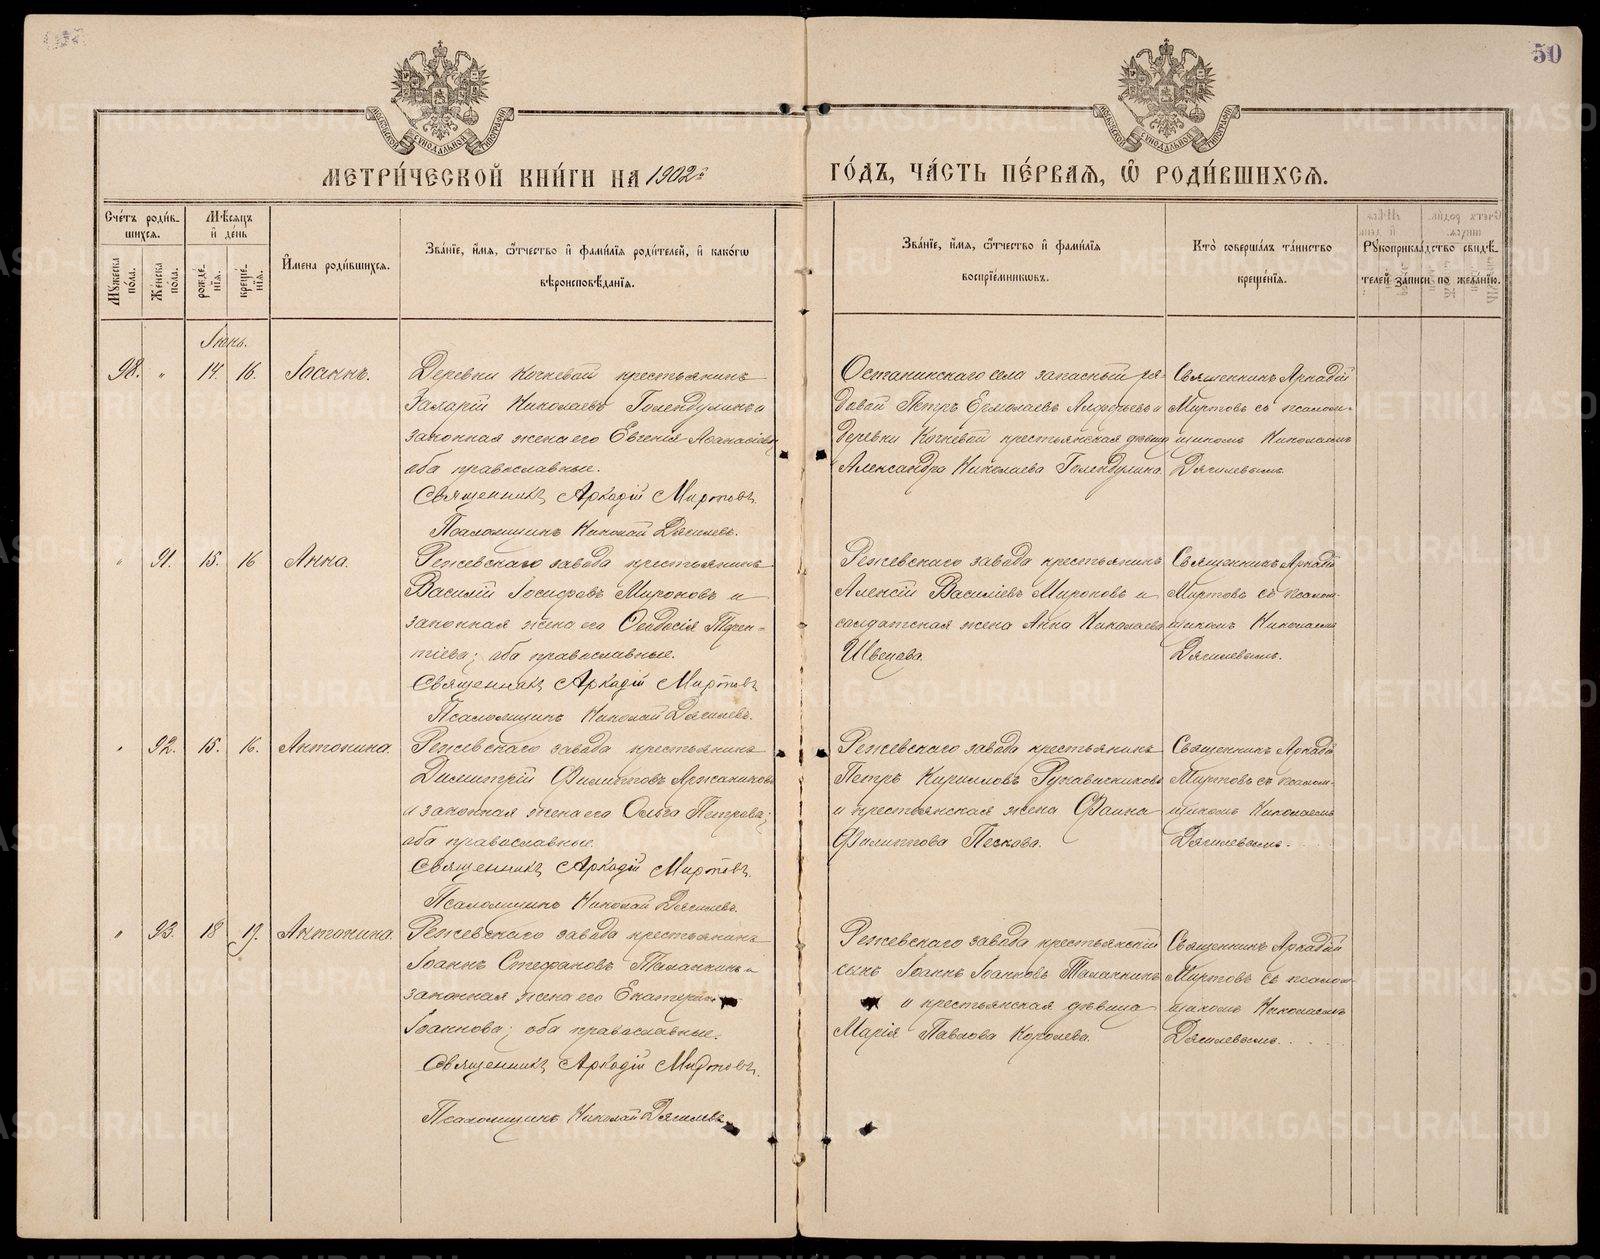 50
МОСКОВСКОЙ СУНОДАЛЬНОЙ ТИПОГРАФІИ
МОСКОВСКОЙ СУНОДАЛЬНОЙ ТИПОГРАФІИ
МЕТРИ́ЧЕСКОЙ КНИ́ГИ НА 1902й ГО́ДЪ, ЧА́СТЬ ПЕ́РВАѦ, Ѡ҆ РОДИ́ВШИХСѦ.
Сче́тъ роди́в-
шихсѧ.
Мꙋ́жеска по́ла.
Же́нска по́ла.
Мѣ́сѧцъ
и҆ де́нь
рожде́-
нїѧ.
креще́-
нїѧ.
И҆мена роди́вшихсѧ.
Зва́нїе, и҆́мѧ, ѻ҆́тчество и҆ фамі́лїѧ роди́телей, и҆ како́гѡ
вѣроисповѣ́данїѧ.
Зва́нїе, и҆́мѧ, ѻ҆́тчество и҆ фамі́лїѧ
воспрїе́мникѡвъ.
Кто̀ соверша́лъ та́инство
креще́нїѧ.
Рꙋкоприкла́дство свидѣ́-
телей за́писи по жела́нїю.
Іюнь.
98. „ 14. 16. Іоаннъ.
Деревни Кочневой крестьянинъ
Захарій Николаевъ Голендухинъ и
законная жена его Евгенія Аѳанасіева,
оба православные.
Священникъ Аркадій Миртовъ.
Псаломщикъ Николай Дягилевъ.
Останинскаго села запасный ря-
довой Петръ Ермолаевъ Алферьевъ и
деревни Кочневой крестьянская дѣвица
Александра Николаева Голендухина.
Священникъ Аркадій
Миртовъ съ псалом-
щикомъ Николаемъ
Дягилевымъ.
„ 91. 15. 16 Анна.
Режевскаго завода крестьянинъ
Василій Іосифовъ Мироновъ и
законная жена его Ѳеодосія Терен-
тіева; оба православные.
Священникъ Аркадій Миртовъ
Псаломщикъ Николай Дягилевъ.
Режевскаго завода крестьянинъ
Алексій Василіевъ Мироновъ и
солдатская жена Анна Николаева
Швецова.
Священникъ Аркадій
Миртовъ съ псалом-
щикомъ Николаемъ
Дягилевымъ.
„ 92. 15. 16. Антонина.
Режевскаго завода крестьянинъ
Димитрій Филипповъ Аржанниковъ
и законная жена его Ольга Петрова;
оба православные.
Священникъ Аркадій Миртовъ.
Псаломщикъ Николай Дягилевъ.
Режевскаго завода крестьянинъ
Петръ Кирилловъ Рукавишниковъ
и крестьянская жена Фаина
Филиппова Пескова.
Священникъ Аркадій
Миртовъ съ псалом-
щикомъ Николаемъ
Дягилевымъ.
„ 93. 18 19. Антонина.
Режевскаго завода крестьянинъ
Іоаннъ Стефановъ Таланкинъ и
законная жена его Екатерина
Іоаннова; оба православные.
Священникъ Аркадій Миртовъ.
Псаломщикъ Николай Дягилевъ.
Режевскаго завода крестьянскій
сынъ Іоаннъ Іоанновъ Таланкинъ
и крестьянская дѣвица
Марія Павлова Королева.
Священникъ Аркадій
Миртовъ съ псалом-
щикомъ Николаемъ
Дягилевымъ.
METRIKI.GASO-URAL.RU